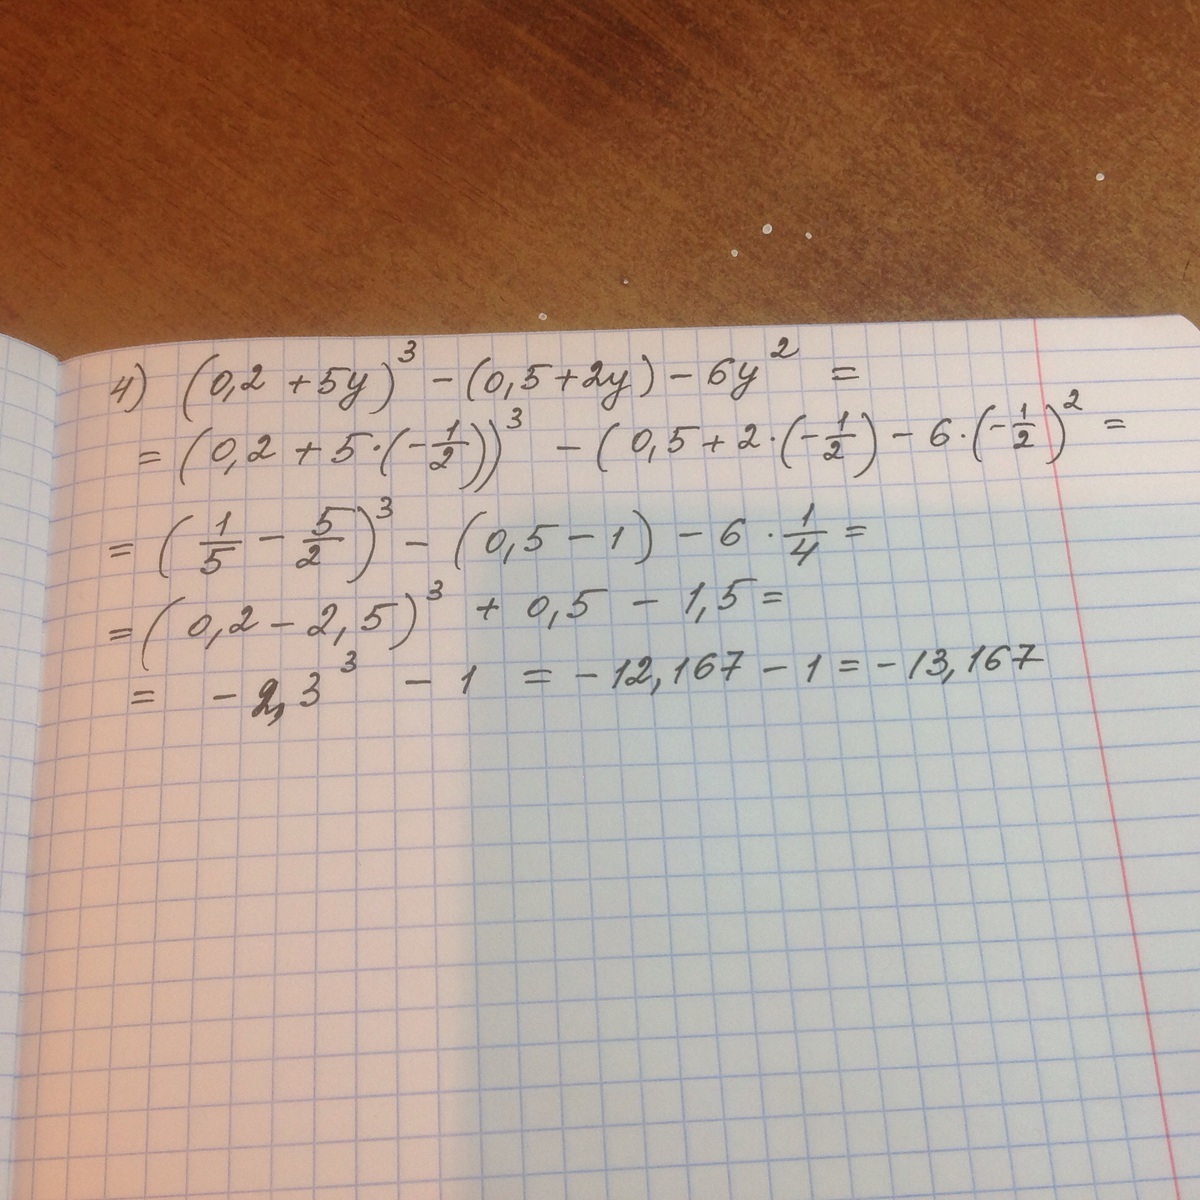 4) (0,2 + 5y)³ - (0,5 + 2y) - 6y² =
= (0,2 + 5·(-1/2))³ - (0,5 + 2·(-1/2) - 6·(-1/2)² =
= (1/5 - 5/2)³ - (0,5 - 1) - 6 · 1/4 =
= (0,2 - 2,5)³ + 0,5 - 1,5 =
= -2,3³ - 1 = -12,167 - 1 = -13,167